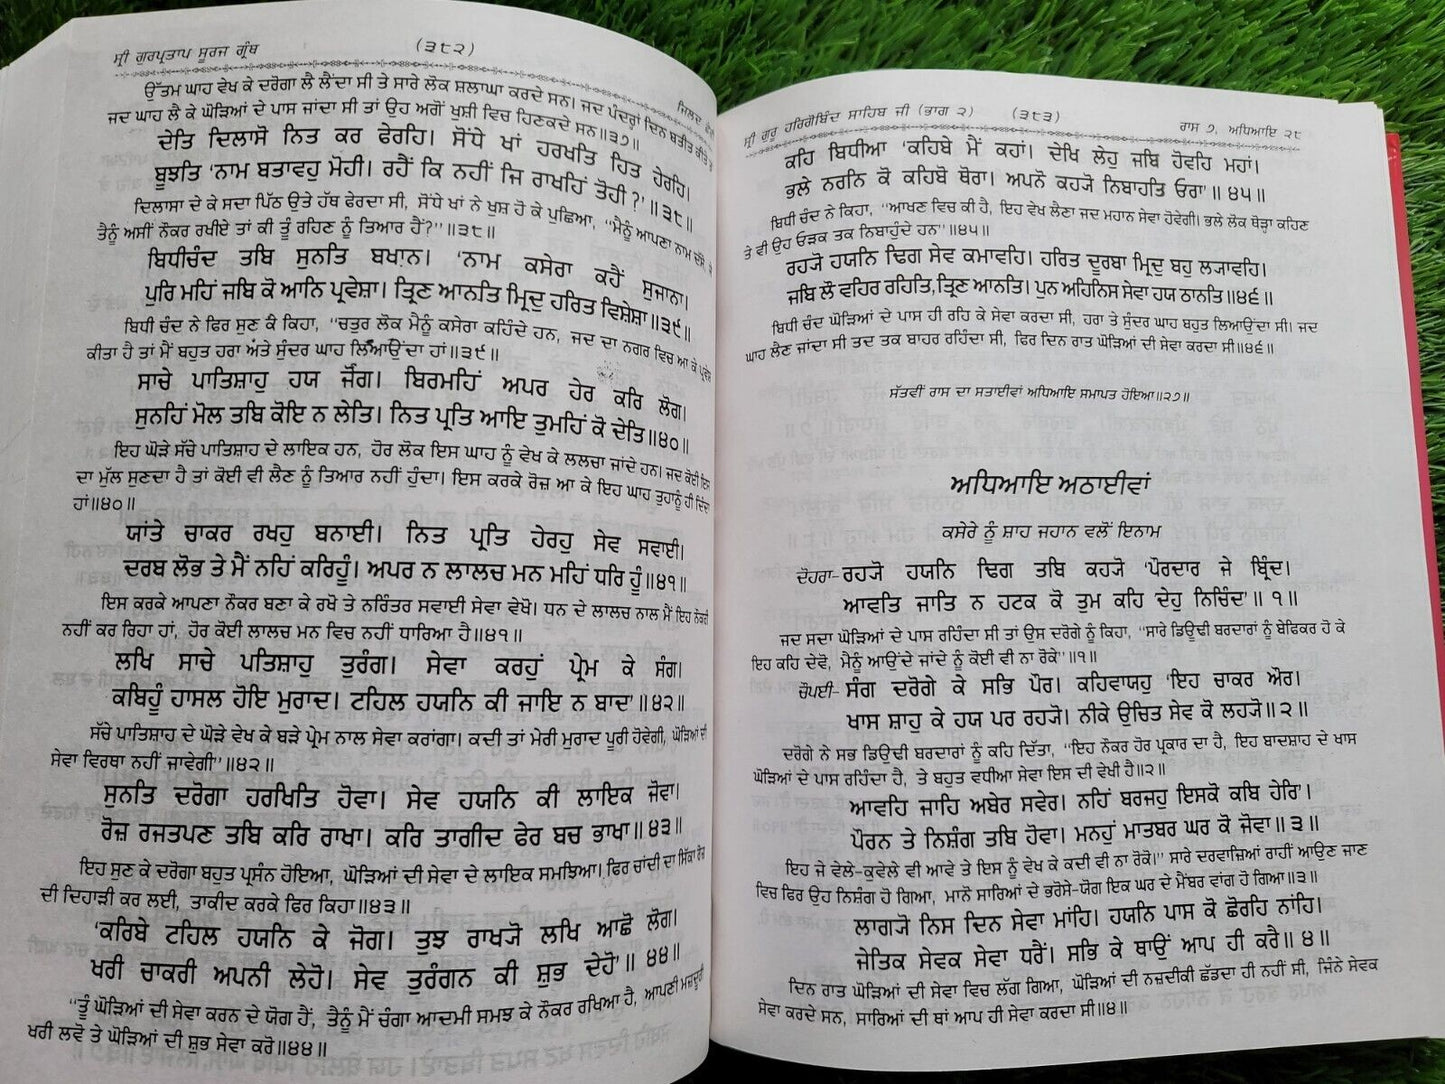 ਸ੍ਰੀ ਗੁਰਪ੍ਰਤਾਪ ਸੂਰਜ ਗ੍ਰੰਥ
(੩੮੨)
ਜਿਲਦ
ਉੱਤਮ ਘਾਹ ਵੇਖ ਕੇ ਦਰੋਗਾ ਲੈ ਲੈਂਦਾ ਸੀ ਤੇ ਸਾਰੇ ਲੋਕ ਸ਼ਲਾਘਾ ਕਰਦੇ ਸਨ। ਜਦ ਪੰਦਰ੍ਹਾਂ ਦਿਨ ਬਤੀਤ ਕੀਤੇ
ਜਦ ਘਾਹ ਲੈ ਕੇ ਘੋੜਿਆਂ ਦੇ ਪਾਸ ਜਾਂਦਾ ਸੀ ਤਾਂ ਉਹ ਅਗੋਂ ਖੁਸ਼ੀ ਵਿਚ ਹਿਣਕਦੇ ਸਨ॥੩੭॥
ਦੇਤਿ ਦਿਲਾਸੋ ਨਿਤ ਕਰ ਫੇਰਹਿ। ਸੋਂਧੇ ਖਾਂ ਹਰਖਤਿ ਹਿਤ ਹੇਰਹਿ।
ਬੂਝਤਿ ‘ਨਾਮ ਬਤਾਵਹੁ ਮੋਹੀ। ਰਹੈਂ ਕਿ ਨਹੀਂ ਜਿ ਰਾਖਹਿਂ ਤੋਹੀ ?’॥੩੮॥
ਦਿਲਾਸਾ ਦੇ ਕੇ ਸਦਾ ਪਿੱਠ ਉਤੇ ਹੱਥ ਫੇਰਦਾ ਸੀ, ਸੋਂਧੇ ਖਾਂ ਨੇ ਖੁਸ਼ ਹੋ ਕੇ ਪੁਛਿਆ, “ਮੈਨੂੰ ਆਪਣਾ ਨਾਮ ਦੱਸੋ,
ਤੈਨੂੰ ਅਸੀਂ ਨੌਕਰ ਰਖੀਏ ਤਾਂ ਕੀ ਤੂੰ ਰਹਿਣ ਨੂੰ ਤਿਆਰ ਹੈਂ?”॥੩੮॥
ਬਿਧੀਚੰਦ ਤਬਿ ਸੁਨਤਿ ਬਖਾਨ। ‘ਨਾਮ ਕਸੇਰਾ ਕਹੈਂ ਸੁਜਾਨਾ।
ਪੁਰਿ ਮਹਿਂ ਜਬਿ ਕੋ ਆਨਿ ਪ੍ਰਵੇਸ਼ਾ। ਤ੍ਰਿਣ ਆਨਤਿ ਮ੍ਰਿਦੁ ਹਰਿਤ ਵਿਸ਼ੇਸ਼ਾ॥੩੯॥
ਬਿਧੀ ਚੰਦ ਨੇ ਫਿਰ ਸੁਣ ਕੇ ਕਿਹਾ, “ਚਤੁਰ ਲੋਕ ਮੈਨੂੰ ਕਸੇਰਾ ਕਹਿੰਦੇ ਹਨ, ਜਦ ਦਾ ਨਗਰ ਵਿਚ ਆ ਕੇ ਪ੍ਰਵੇਸ਼
ਕੀਤਾ ਹੈ ਤਾਂ ਮੈਂ ਬਹੁਤ ਹਰਾ ਅਤੇ ਸੁੰਦਰ ਘਾਹ ਲਿਆਉਂਦਾ ਹਾਂ॥੩੯॥
ਸਾਚੇ ਪਾਤਿਸ਼ਾਹੁ ਹਯ ਜੋਗ। ਬਿਰਮਹਿਂ ਅਪਰ ਹੇਰ ਕਰਿ ਲੋਗ।
ਸੁਨਹਿਂ ਮੋਲ ਤਬਿ ਕੋਇ ਨ ਲੇਤਿ। ਨਿਤ ਪ੍ਰਤਿ ਆਇ ਤੁਮਹਿਂ ਕੋ ਦੇਤਿ॥੪੦॥
ਇਹ ਘੋੜੇ ਸੱਚੇ ਪਾਤਿਸ਼ਾਹ ਦੇ ਲਾਇਕ ਹਨ, ਹੋਰ ਲੋਕ ਇਸ ਘਾਹ ਨੂੰ ਵੇਖ ਕੇ ਲਲਚਾ ਜਾਂਦੇ ਹਨ। ਜਦ ਕੋਈ ਇਸ
ਦਾ ਮੁੱਲ ਸੁਣਦਾ ਹੈ ਤਾਂ ਕੋਈ ਵੀ ਲੈਣ ਨੂੰ ਤਿਆਰ ਨਹੀਂ ਹੁੰਦਾ। ਇਸ ਕਰਕੇ ਰੋਜ਼ ਆ ਕੇ ਇਹ ਘਾਹ ਤੁਹਾਨੂੰ ਹੀ ਦਿੰਦਾ
ਹਾਂ॥੪੦॥
ਯਾਂਤੇ ਚਾਕਰ ਰਖਹੁ ਬਨਾਈ। ਨਿਤ ਪ੍ਰਤਿ ਹੇਰਹੁ ਸੇਵ ਸਵਾਈ।
ਦਰਬ ਲੋਭ ਤੇ ਮੈਂ ਨਹਿਂ ਕਰਿਹੂੰ। ਅਪਰ ਨ ਲਾਲਚ ਮਨ ਮਹਿਂ ਧਰਿ ਹੂੰ॥੪੧॥
ਇਸ ਕਰਕੇ ਆਪਣਾ ਨੌਕਰ ਬਣਾ ਕੇ ਰਖੋ ਤੇ ਨਰਿੰਤਰ ਸਵਾਈ ਸੇਵਾ ਵੇਖੋ। ਧਨ ਦੇ ਲਾਲਚ ਨਾਲ ਮੈਂ ਇਹ ਨੌਕਰੀ
ਨਹੀਂ ਕਰ ਰਿਹਾ ਹਾਂ, ਹੋਰ ਕੋਈ ਲਾਲਚ ਮਨ ਵਿਚ ਨਹੀਂ ਧਾਰਿਆ ਹੈ॥੪੧॥
ਲਖਿ ਸਾਚੇ ਪਤਿਸ਼ਾਹੁ ਤੁਰੰਗ। ਸੇਵਾ ਕਰਹੁਂ ਪ੍ਰੇਮ ਕੇ ਸੰਗ।
ਕਬਿਹੂੰ ਹਾਸਲ ਹੋਇ ਮੁਰਾਦ। ਟਹਿਲ ਹਯਨਿ ਕੀ ਜਾਇ ਨ ਬਾਦ’॥੪੨॥
ਸੱਚੇ ਪਾਤਿਸ਼ਾਹ ਦੇ ਘੋੜੇ ਵੇਖ ਕੇ ਬੜੇ ਪ੍ਰੇਮ ਨਾਲ ਸੇਵਾ ਕਰਾਂਗਾ। ਕਦੀ ਤਾਂ ਮੇਰੀ ਮੁਰਾਦ ਪੂਰੀ ਹੋਵੇਗੀ, ਘੋੜਿਆਂ ਦੀ
ਸੇਵਾ ਵਿਰਥਾ ਨਹੀਂ ਜਾਵੇਗੀ”॥੪੨॥
ਸੁਨਤਿ ਦਰੋਗਾ ਹਰਖਿਤਿ ਹੋਵਾ। ਸੇਵ ਹਯਨਿ ਕੀ ਲਾਇਕ ਜੋਵਾ।
ਰੋਜ਼ ਰਜਤਪਣ ਤਬਿ ਕਰਿ ਰਾਖਾ। ਕਰਿ ਤਾਗੀਦ ਫੇਰ ਬਚ ਭਾਖਾ॥੪੩॥
ਇਹ ਸੁਣ ਕੇ ਦਰੋਗਾ ਬਹੁਤ ਪ੍ਰਸੰਨ ਹੋਇਆ, ਘੋੜਿਆਂ ਦੀ ਸੇਵਾ ਦੇ ਲਾਇਕ ਸਮਝਿਆ। ਫਿਰ ਚਾਂਦੀ ਦਾ ਸਿੱਕਾ ਰੋਜ਼
ਦੀ ਦਿਹਾੜੀ ਕਰ ਲਈ, ਤਾਕੀਦ ਕਰਕੇ ਫਿਰ ਕਿਹਾ॥੪੩॥
‘ਕਰਿਬੇ ਟਹਿਲ ਹਯਨਿ ਕੇ ਜੋਗ। ਤੁਝ ਰਾਖ੍ਯੋ ਲਖਿ ਆਛੋ ਲੋਗ।
ਖਰੀ ਚਾਕਰੀ ਅਪਨੀ ਲੇਹੋ। ਸੇਵ ਤੁਰੰਗਨ ਕੀ ਸ਼ੁਭ ਦੇਹੋ’॥੪੪॥
“ਤੂੰ ਘੋੜਿਆਂ ਦੀ ਸੇਵਾ ਕਰਨ ਦੇ ਯੋਗ ਹੈਂ, ਤੈਨੂੰ ਮੈਂ ਚੰਗਾ ਆਦਮੀ ਸਮਝ ਕੇ ਨੌਕਰ ਰਖਿਆ ਹੈ, ਆਪਣੀ ਮਜ਼ਦੂਰੀ
ਖਰੀ ਲਵੋ ਤੇ ਘੋੜਿਆਂ ਦੀ ਸ਼ੁਭ ਸੇਵਾ ਕਰੋ॥੪੪॥
ਸ੍ਰੀ ਗੁਰੂ ਹਰਿਗੋਬਿੰਦ ਸਾਹਿਬ ਜੀ (ਭਾਗ ੨)
(੩੮੩)
ਰਾਸ ੭, ਅਧਿਆਇ ੨੮
ਕਹਿ ਬਿਧੀਆ ‘ਕਹਿਬੇ ਮੈਂ ਕਹਾਂ। ਦੇਖਿ ਲੇਹੁ ਜਬਿ ਹੋਵਹਿ ਮਹਾਂ।
ਭਲੇ ਨਰਨਿ ਕੋ ਕਹਿਬੋ ਥੋਰਾ। ਅਪਨੋ ਕਹ੍ਯੋ ਨਿਬਾਹਤਿ ਓਰਾ’॥੪੫॥
ਬਿਧੀ ਚੰਦ ਨੇ ਕਿਹਾ, “ਆਖਣ ਵਿਚ ਕੀ ਹੈ, ਇਹ ਵੇਖ ਲੈਣਾ ਜਦ ਮਹਾਨ ਸੇਵਾ ਹੋਵੇਗੀ। ਭਲੇ ਲੋਕ ਥੋੜ੍ਹਾ ਕਹਿਣ
ਤੇ ਵੀ ਉਹ ਓੜਕ ਤਕ ਨਿਬਾਹੁੰਦੇ ਹਨ”॥੪੫॥
ਰਹ੍ਯੋ ਹਯਨਿ ਢਿਗ ਸੇਵ ਕਮਾਵਹਿ। ਹਰਿਤ ਦੂਰਬਾ ਮ੍ਰਿਦੁ ਬਹੁ ਲ੍ਯਾਵਹਿ।
ਜਬਿ ਲੌ ਵਹਿਰ ਰਹਿਤਿ,ਤ੍ਰਿਣ ਆਨਤਿ। ਪੁਨ ਅਹਿਨਿਸ ਸੇਵਾ ਹਯ ਠਾਨਤਿ॥੪੬॥
ਬਿਧੀ ਚੰਦ ਘੋੜਿਆਂ ਦੇ ਪਾਸ ਹੀ ਰਹਿ ਕੇ ਸੇਵਾ ਕਰਦਾ ਸੀ, ਹਰਾ ਤੇ ਸੁੰਦਰ ਘਾਹ ਬਹੁਤ ਲਿਆਉਂਦਾ ਸੀ। ਜਦ
ਘਾਹ ਲੈਣ ਜਾਂਦਾ ਸੀ ਤਦ ਤਕ ਬਾਹਰ ਰਹਿੰਦਾ ਸੀ, ਫਿਰ ਦਿਨ ਰਾਤ ਘੋੜਿਆਂ ਦੀ ਸੇਵਾ ਕਰਦਾ ਸੀ॥੪੬॥
ਸੱਤਵੀਂ ਰਾਸ ਦਾ ਸਤਾਈਵਾਂ ਅਧਿਆਇ ਸਮਾਪਤ ਹੋਇਆ॥੨੭॥
ਅਧਿਆਇ ਅਠਾਈਵਾਂ
ਕਸੇਰੇ ਨੂੰ ਸ਼ਾਹ ਜਹਾਨ ਵਲੋਂ ਇਨਾਮ
ਦੋਹਰਾ- ਰਹ੍ਯੋ ਹਯਨਿ ਢਿਗ ਤਬਿ ਕਹ੍ਯੋ ‘ਪੌਰਦਾਰ ਜੇ ਬ੍ਰਿੰਦ।
ਆਵਤਿ ਜਾਤਿ ਨ ਹਟਕ ਕੋ ਤੁਮ ਕਹਿ ਦੇਹੁ ਨਿਚਿੰਦ’॥੧॥
ਜਦ ਸਦਾ ਘੋੜਿਆਂ ਦੇ ਪਾਸ ਰਹਿੰਦਾ ਸੀ ਤਾਂ ਉਸ ਦਰੋਗੇ ਨੂੰ ਕਿਹਾ, “ਸਾਰੇ ਡਿਊਢੀ ਬਰਦਾਰਾਂ ਨੂੰ ਬੇਫਿਕਰ ਹੋ ਕੇ
ਇਹ ਕਹਿ ਦੇਵੋ, ਮੈਨੂੰ ਆਉਂਦੇ ਜਾਂਦੇ ਨੂੰ ਕੋਈ ਵੀ ਨਾ ਰੋਕੇ”॥੧॥
ਚੌਪਈ- ਸੰਗ ਦਰੋਗੇ ਕੇ ਸਭਿ ਪੌਰ। ਕਹਿਵਾਯਹੁ ‘ਇਹ ਚਾਕਰ ਔਰ।
ਖਾਸ ਸ਼ਾਹੁ ਕੇ ਹਯ ਪਰ ਰਹ੍ਯੋ। ਨੀਕੇ ਉਚਿਤ ਸੇਵ ਕੋ ਲਹ੍ਯੋ॥੨॥
ਦਰੋਗੇ ਨੇ ਸਭ ਡਿਉਢੀ ਬਰਦਾਰਾਂ ਨੂੰ ਕਹਿ ਦਿੱਤਾ, “ਇਹ ਨੌਕਰ ਹੋਰ ਪ੍ਰਕਾਰ ਦਾ ਹੈ, ਇਹ ਬਾਦਸ਼ਾਹ ਦੇ ਖਾਸ
ਘੋੜਿਆਂ ਦੇ ਪਾਸ ਰਹਿੰਦਾ ਹੈ, ਤੇ ਬਹੁਤ ਵਧੀਆ ਸੇਵਾ ਇਸ ਦੀ ਵੇਖੀ ਹੈ॥੨॥
ਆਵਹਿ ਜਾਹਿ ਅਬੇਰ ਸਵੇਰ। ਨਹਿਂ ਬਰਜਹੁ ਇਸਕੋ ਕਬਿ ਹੇਰਿ’।
ਪੌਰਨ ਤੇ ਨਿਸ਼ੰਗ ਤਬਿ ਹੋਵਾ। ਮਨਹੁਂ ਮਾਤਬਰ ਘਰ ਕੋ ਜੋਵਾ॥੩॥
ਇਹ ਜੇ ਵੇਲੇ-ਕੁਵੇਲੇ ਵੀ ਆਵੇ ਤੇ ਇਸ ਨੂੰ ਵੇਖ ਕੇ ਕਦੀ ਵੀ ਨਾ ਰੋਕੋ।” ਸਾਰੇ ਦਰਵਾਜ਼ਿਆਂ ਰਾਹੀਂ ਆਉਣ ਜਾਣ
ਵਿਚ ਫਿਰ ਉਹ ਨਿਸ਼ੰਗ ਹੋ ਗਿਆ, ਮਾਨੋ ਸਾਰਿਆਂ ਦੇ ਭਰੋਸੇ-ਯੋਗ ਇਕ ਘਰ ਦੇ ਮੈਂਬਰ ਵਾਂਗ ਹੋ ਗਿਆ॥੩॥
ਲਾਗ੍ਯੋ ਨਿਸ ਦਿਨ ਸੇਵਾ ਮਾਂਹਿ। ਹਯਨਿ ਪਾਸ ਕੋ ਛੋਰਹਿ ਨਾਂਹਿ।
ਜੇਤਿਕ ਸੇਵਕ ਸੇਵਾ ਧਰੈਂ। ਸਭਿ ਕੇ ਥਾਉਂ ਆਪ ਹੀ ਕਰੈ॥੪॥
ਦਿਨ ਰਾਤ ਘੋੜਿਆਂ ਦੀ ਸੇਵਾ ਵਿਚ ਲੱਗ ਗਿਆ, ਘੋੜਿਆਂ ਦੀ ਨਜ਼ਦੀਕੀ ਛੱਡਦਾ ਹੀ ਨਹੀਂ ਸੀ, ਜਿੰਨੇ ਸੇਵਕ
ਸੇਵਾ ਕਰਦੇ ਸਨ, ਸਾਰਿਆਂ ਦੀ ਥਾਂ ਆਪ ਹੀ ਸੇਵਾ ਕਰਦਾ ਸੀ॥੪॥